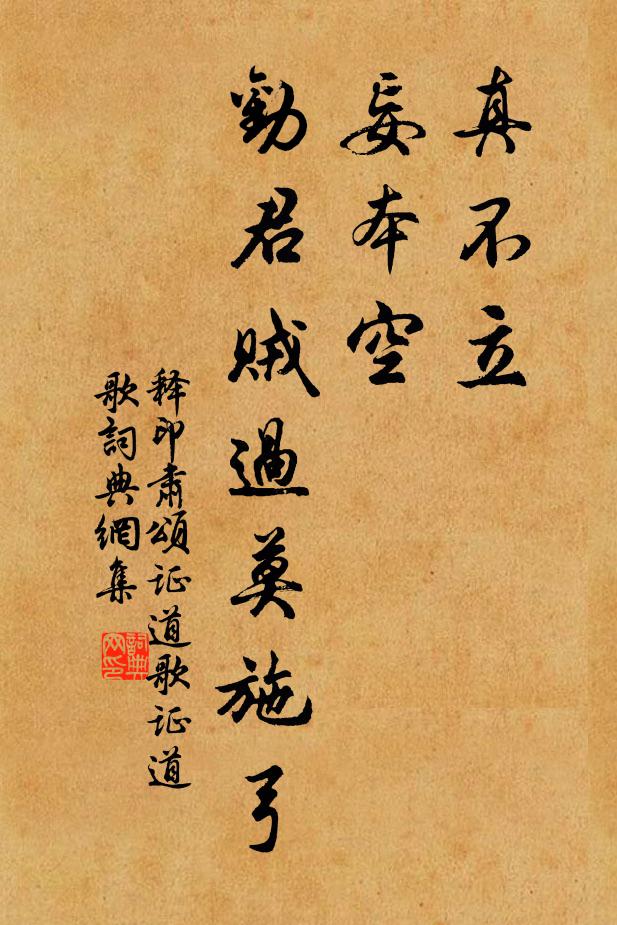 真不立
妄本空
勸君賊過莫施弓
释印肃頌证道歌证道
歌詞典網集
詞典
网印